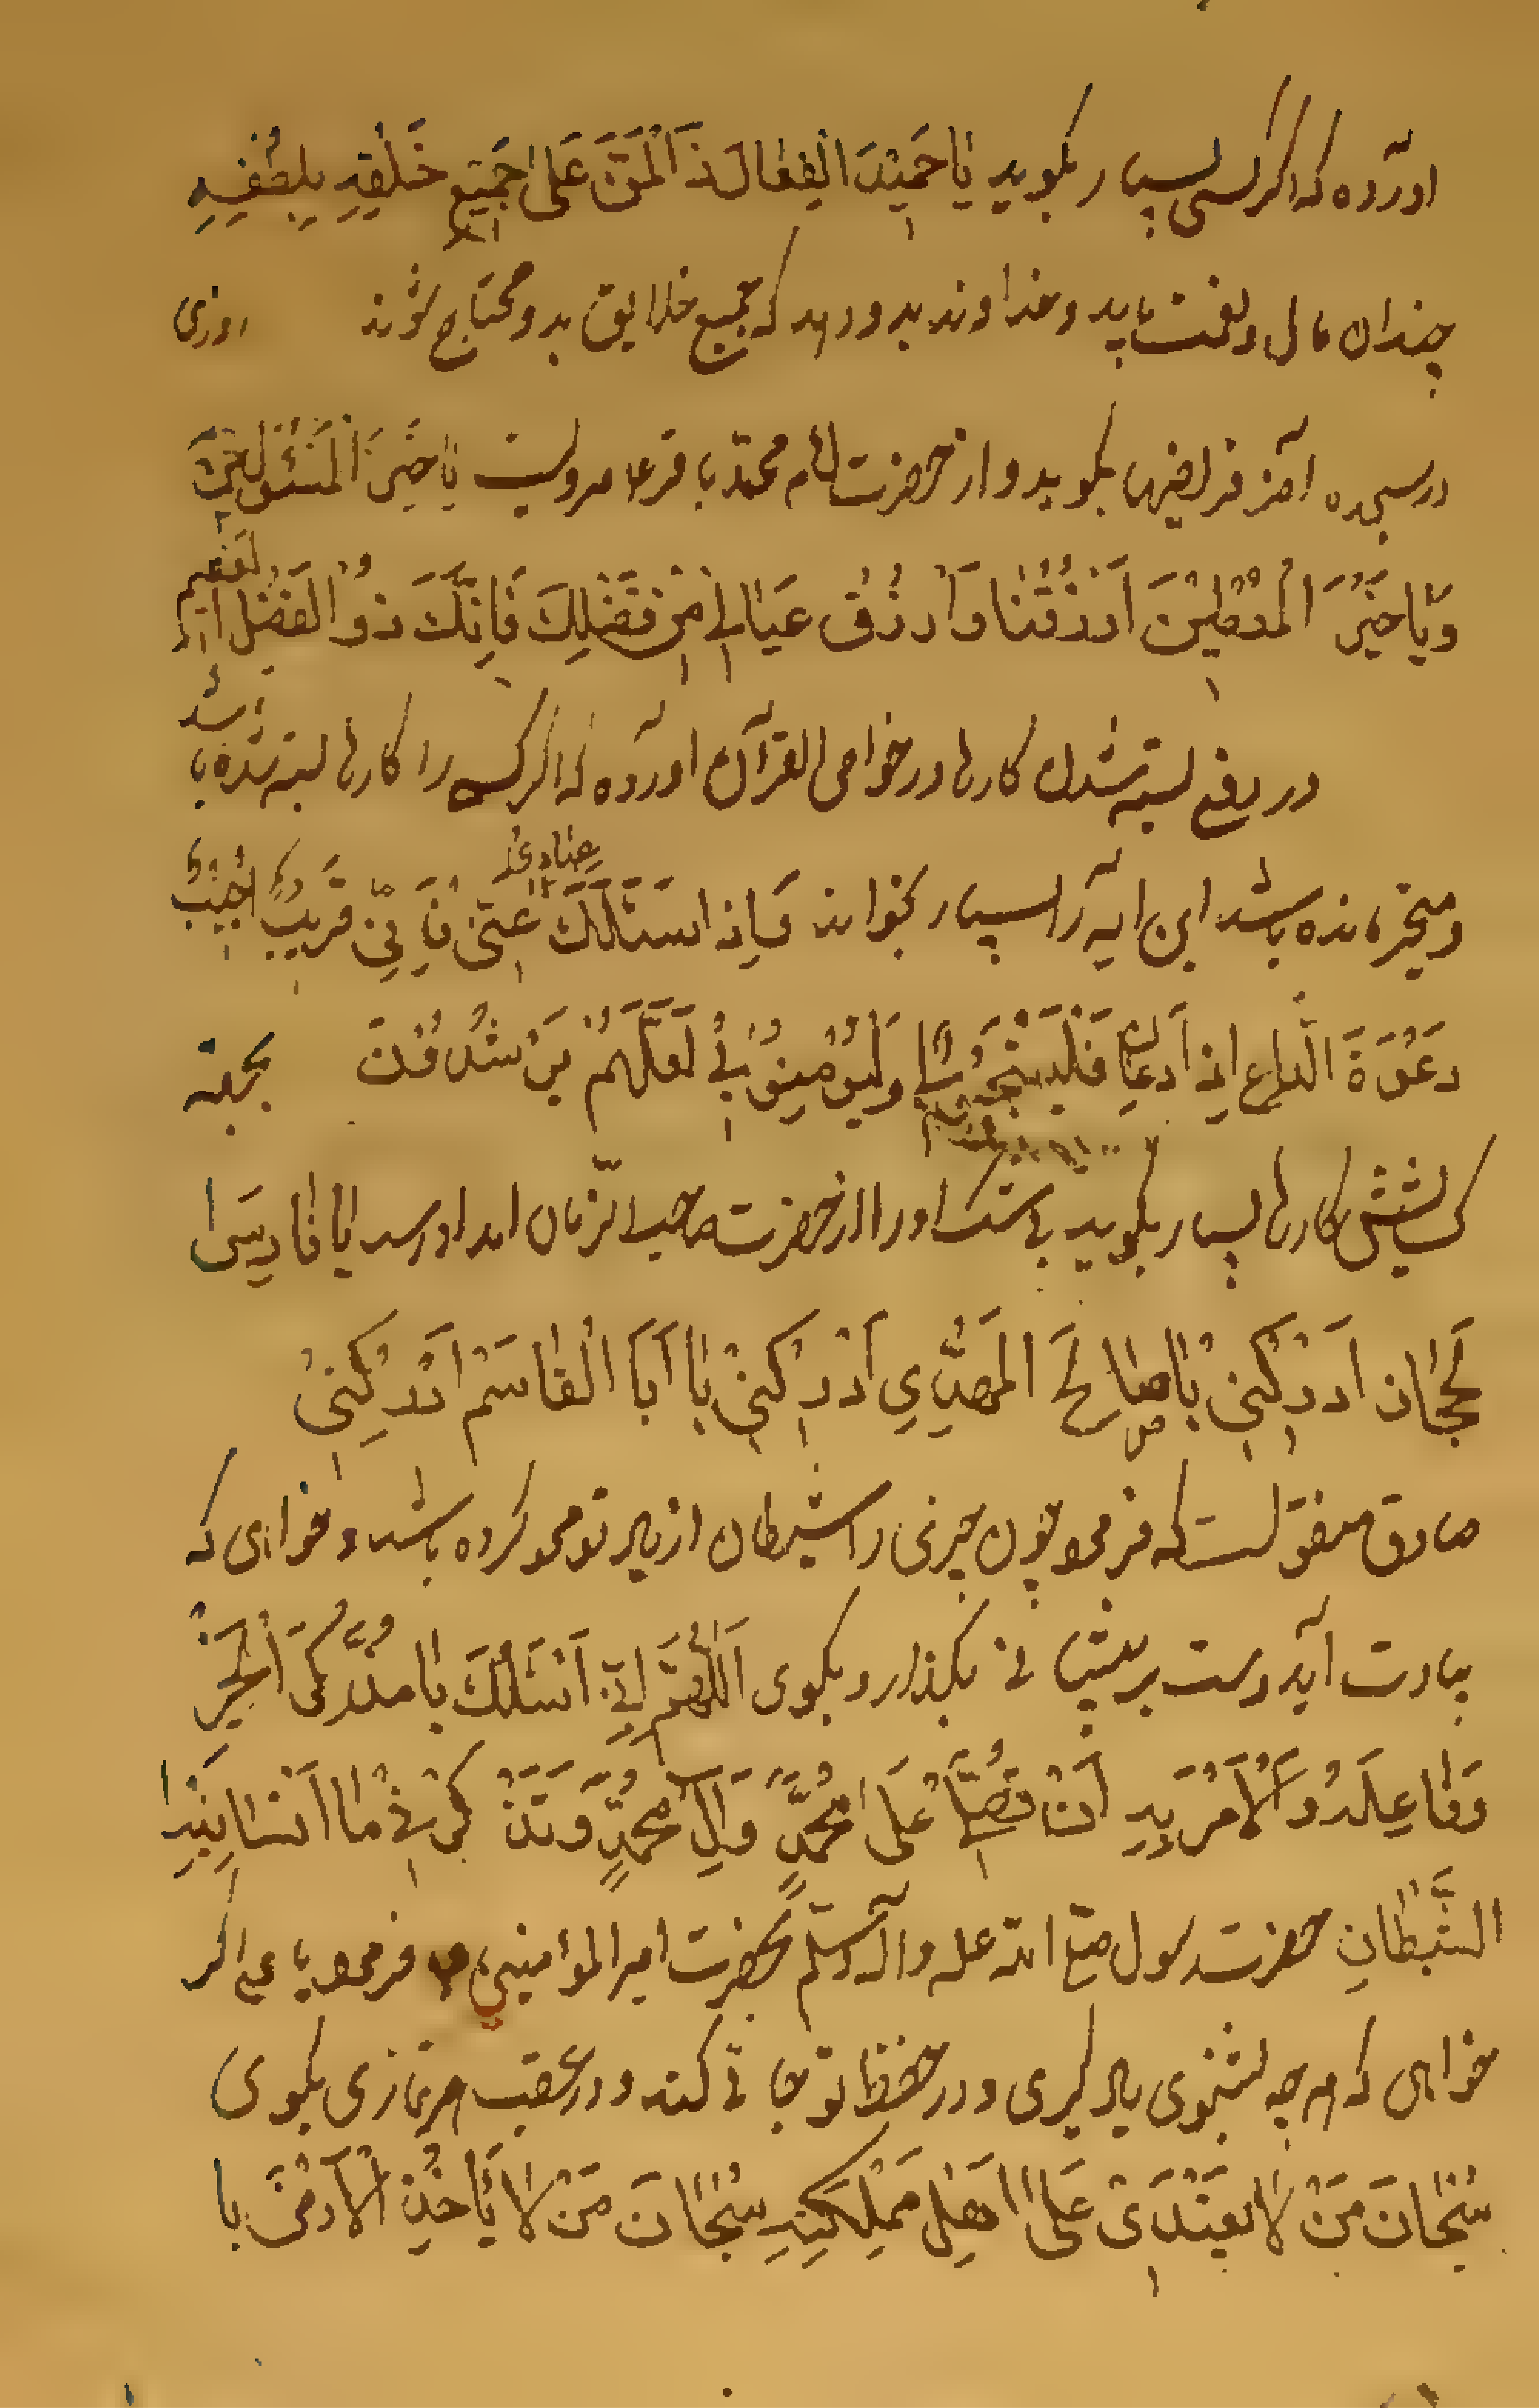 اورده که اگر کسی بسیار بگوید یا حَمیٖدَ الفِعٰالِ ذَالْمَنِّ عَلیٰ جَمیٖعِ خَلْقِهِ بِلُطْفِهِ
چندان مال و نعمت یابد و خداوند بدو دهد که جمیع خلایق بدو محتاج شوند روزی
در سجده آخر فرایض بگوید و از حضرت امام محمد باقر ع مرویست یٰا خَیْرَ الْمَسْئُولیٖنَ
وَیٰا خَیْرَ الْمُعْطیٖنَ اُرْزُقْنٰا وَارْزُقْ عَیٰالیٖ مِنْ فَضْلِكَ فَاِنَّكَ ذُوالْفَضْلِ العظیم
در رفع بسته شدن کارها در خواص القرآن اورده که اگر کسی را کارها بسته شده باشد
و متحیر مانده باشد این ایه را بسیار بخواند وَاِذا سَئَلَكَ عِبٰادیٖ عَنّیٖ فَاِنّیٖ قَریٖبٌ اُجیٖبُ
دَعْوَةَ الدّٰاعِ اِذا دَعٰانِ فَلْیَسْتَجیٖبُوا لیٖ وَلْیُؤْمِنُوا بیٖ لَعَلَّهُمْ یَرْشُدُونَ بجهته
کشایش کارها بسیار بگوید بی شک اورا از حضرت صاحب الزمان امداد رسد یٰا فٰارِسَ
الحجاز اَدْرِکْنیٖ یٰا اباصٰالِحَ الْمَهْدِیِّ اَدْرِکْنیٖ یٰا اَبَا الْقٰاسَمْ اَدْرِکْنیٖ
صادق منقولست که فرمود چون چیزی را شیطان از یاد تو محو کرده باشد و خواهی که
بیادت آید دست بر پیشانی بگذار و بگوی اَللّٰهُمَّ اِنّیٖ اَسْئَلُكَ یٰا مُذَکِّرَ الْخَیْرِ
وَفٰاعِلَهُ وَالْاٰمِرَ بِهِ اَنْ تُصَلّیٖ عَلیٰ مُحَمَّدٍ وَاٰلِ مُحَمَّدٍ وَتُذَکِّرَنیٖ مٰا اَنْسٰانیٖهِ
الشَّیْطٰانِ حضرت رسول صلی الله علیه وآله وسلم بحضرت امیر المؤمنین ع فرمود یا علی اگر
خواهی که هر چه بشنوی یاد گیری و در حفظ تو جا کند در عقب هر نمازی بگوی
سُبْحٰانَ مَنْ لاٰ یَعْتَدیٖ عَلیٰ اَهْلِ مَمْلِکَتِهِ سُبْحٰانَ مَنْ لاٰ یَأْخُذُ اَهْلَ الْاَرْضِ با